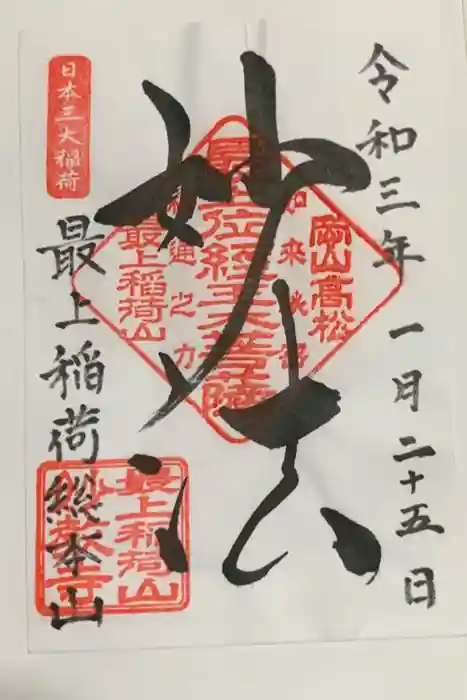 令和三年 一月二十五日
妙法
日本三大稲荷
最上稲荷総本山
岡山高松
最上位経王大菩薩
如来秘密
神通之力
最上稲荷山
最上稲荷山
妙教寺